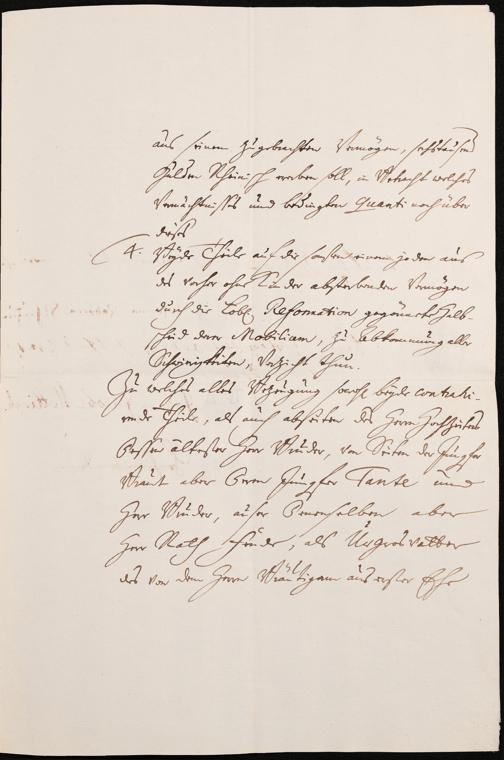 aus seinem zugebrachten Vermögen, sechstausend
Gulden Rheinisch erben soll, in Betracht welches
Vermächtnisses und bedingten Quanti noch über
dieß
4. Beyde Theile auf die sonsten einem jeden aus
des vorher ohne Kinder absterbenden Vermögen
durch die Löbl. Reformation gegönnte Halb-
schied derer Mobilien, zu Abkommung aller
Schwierigkeiten, Verzicht thun.
Zu welches alles Bezeugung sowohl beyde contrahi-
rende Theile, als auch abseiten des Herrn Hochzeiters
Dessen ältester Herr Bruder, von Seiten der Jungfer
Braut aber Deren Jungfer Tante und
Herr Bruder, auser Denenselben aber
Herr Rath, als Urgrosvatter
des von dem Herrn Bräutigam aus erster Ehe